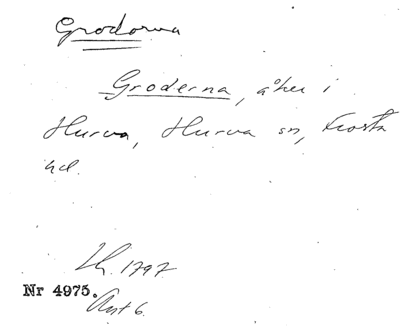 Grodorna
Groderna, åker i
Hurva, Hurva sn, Frosta
hd.
1797
Nr 4975.
Akt 6.